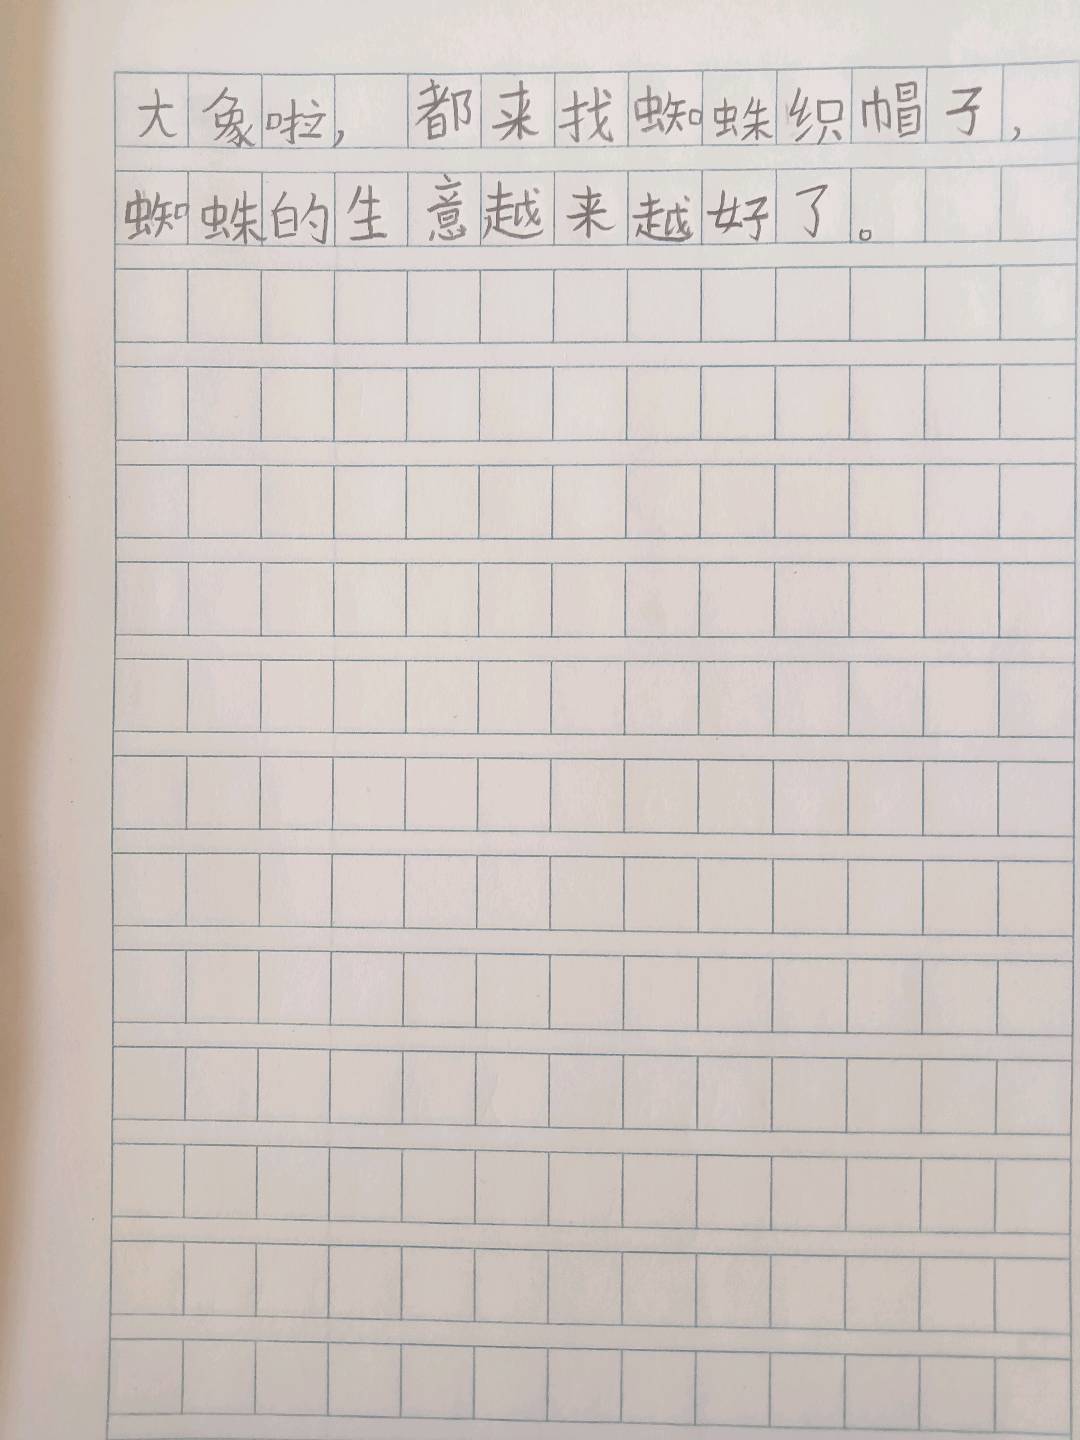 大象啦，都来找蜘蛛织帽子，
蜘蛛的生意越来越好了。